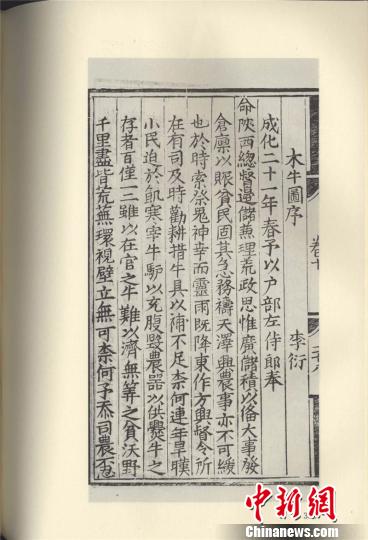 卷十
木牛圖序 李衍
成化二十一年春予以户部左侍郎奉
命陝西總督邊儲兼理荒政思惟廣儲積以俻大事發
倉廪以賑貧民固其急務禱天澤興農事亦不可緩
也於時索祭鬼神幸而靈雨既降東作方興督令所
在有司及時勸耕措牛具以補不足柰何連年旱暵
小民迫於飢寒宰牛馿以充腹毀農器以供爨牛之
存者百僅一二雖以在官之牛難以濟無筭之貧沃野
千里盡皆荒蕪環視壁立無可柰何予忝司農恧
中新网
CHINANEWS.COM